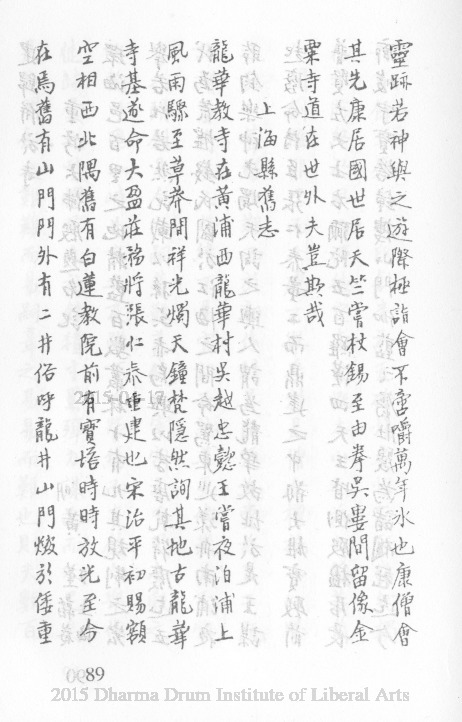 靈跡若神與之遊際極詣會不啻嚼萬年冰也康僧會
其先康居國世居天竺嘗杖錫至由拳吳婁間留像金
粟寺道在世外夫豈欺哉
上海縣舊志
龍華教寺在黃浦西龍華村吳越忠懿王嘗夜泊浦上
風雨驟至草莽間祥光燭天鐘梵隱然詢其地古龍華
寺基遂命大盈莊務將張仁泰重建也宋治平初賜額
空相西北隅舊有白蓮教院前有寶塔時時放光至今
在焉舊有山門門外有二井俗呼龍井山門燬於倭重
2015-04-17
89
2015 Dharma Drum Institute of Liberal Arts